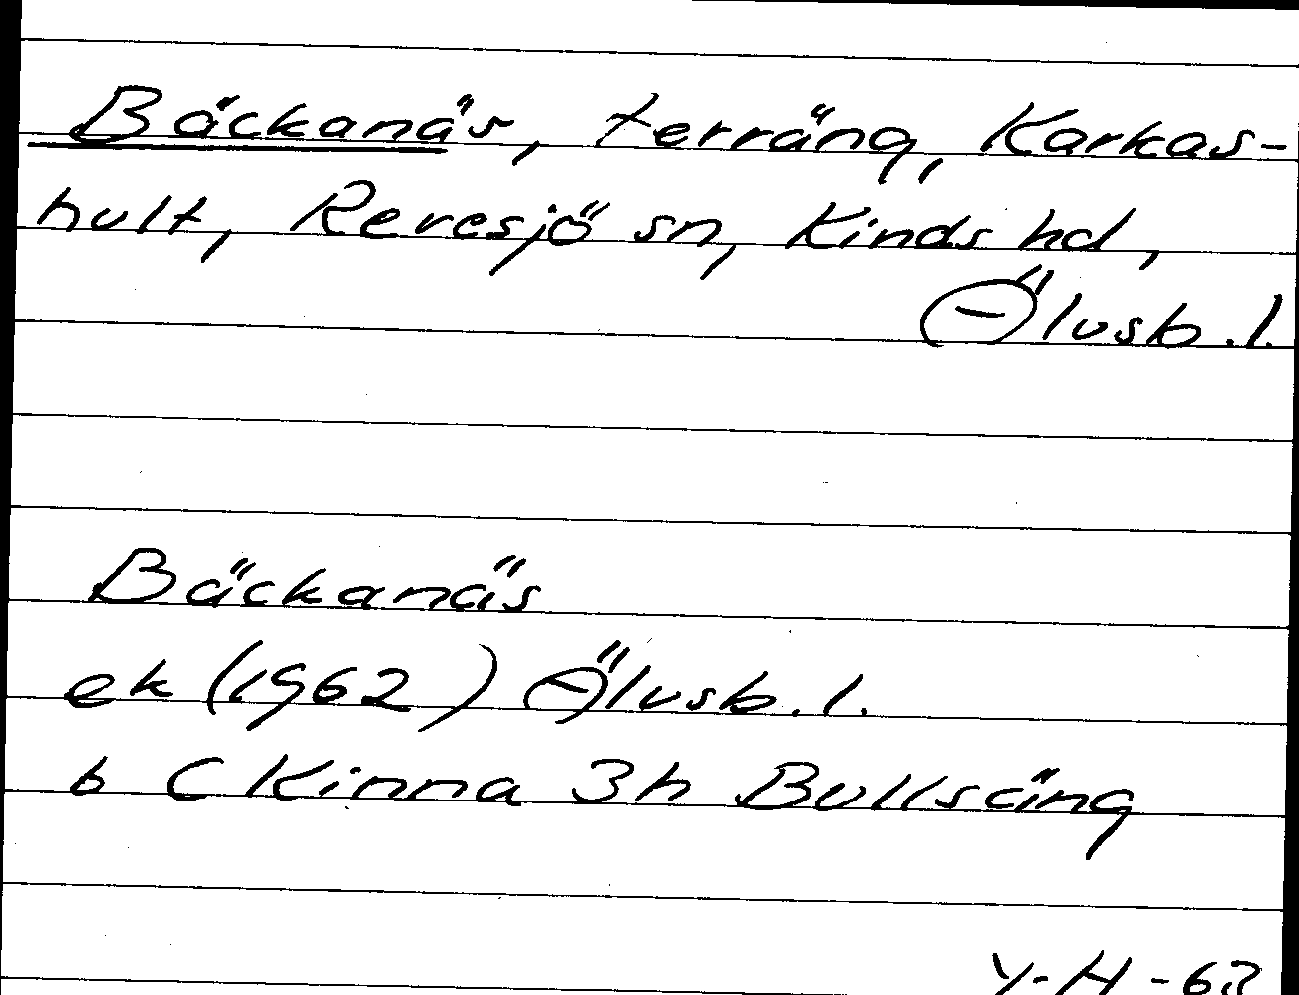 Bäckanäs, terräng, Karkas-
hult, Revesjö sn, Kinds hd,
Älvsb. l.
Bäckanäs
ek (1962) Älvsb. l.
b C Kinna 3h Bullsäng
Y-H-63